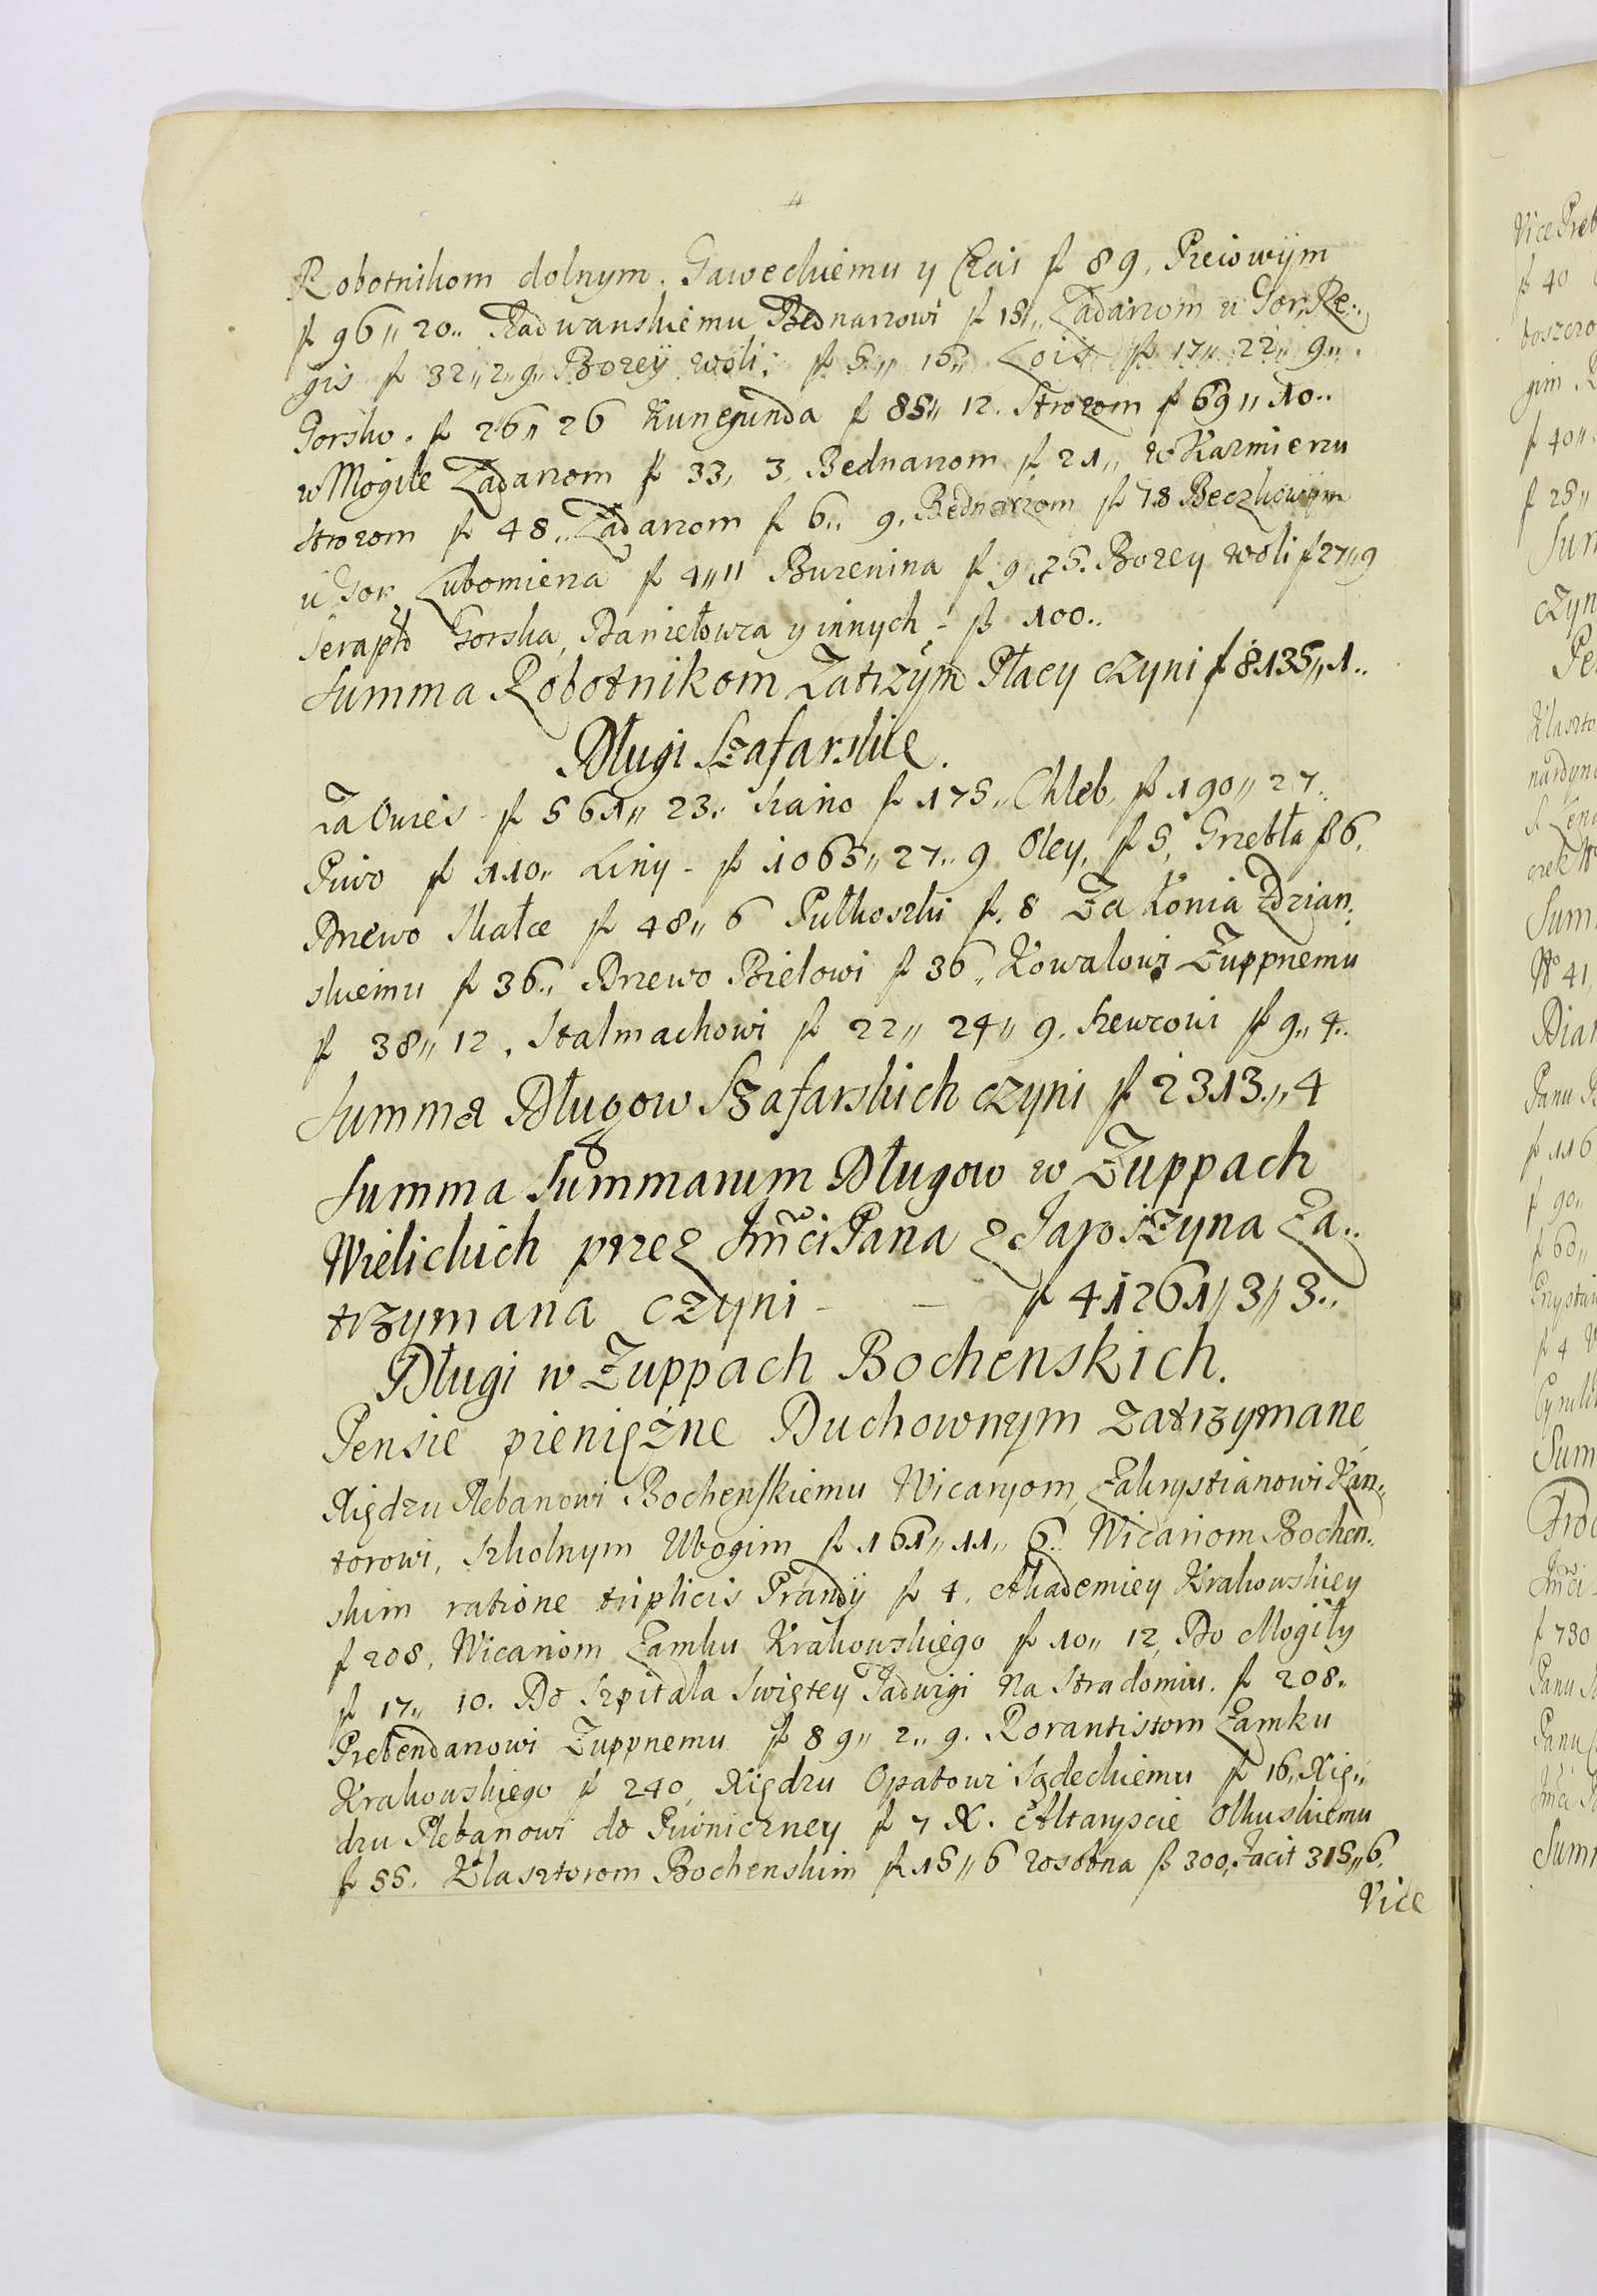 Robotnikom dolnym. Gaweckiemu y f 89, Piecowym
f 96„ 20.. Radwanskiemu Bednarzowi f 15„ Ladarzom u Gor, Re„
gis f 32„ 2„ 9„ Bozey woli f 5„ 15„ Lois f 17„ 22„ 9„
Gorsko. f 26„ 26 Kunegunda f 85„ 12. Strozom f 69„ 10..
w Mogile Ladarzom f 33, 3, Bednarzom f 21„ w Kazmierzu
strozom f 48„ Ladarzom f 6„ 9, Bednarzom f 78 Beczkowym
u Gor Lubomierza f 4„ 11 Buzenina f 9„ 25. Bozey woli f 27„ 9
Seraph Gorska, Danielowca y innych - f 100..
Summa Robotnikom Zatrzym Płacy czyni f 8135„ 1..
Długi Szafarskie.
Za Owies - f 561„ 23. Siano f 175„ Chleb, f 190„ 27.
Piwo f 110„ Liny - f 1065„ 27„ 9 Oley, f 5, Grzebła f 6,
Drzewo Skałce f 48„ 6 Pułkoszki f. 8 Za Konia Zdzian
skiemu f 36„ Drzewo Bielowi f 36, Kowalowi Zuppnemu
f 38„ 12, Stalmachowi f 22„ 24„ 9. Szewcowi f 9„ 4..
Summa Długow Szafarskich czyni f 2313„ 4
Summa Summarum Długow w Zuppach
Wielickich przez Jmci Pana z Jaroszyna Za„
trzymana czyni - - f 41261„ 3„ 3..
Długi w Zuppach Bochenskich.
Pensie pieniężne Duchownym zatrzymane
Xiędzu Plebanowi Bochenskiemu Wicaryom, Zakrystianowi Kan„
torowi, Szkolnym Ubogim f 161„ 11„ 6. Wicariom Bochen„
skim ratione triplicis Prandÿ f 4. Akademiey Krakowskiey
f 208, Wicariom Zamku Krakowskiego f 10„ 12, Do Mogiły
f 17„ 10. Do Szpitala Swiętey Jadwigi na Stradomiu. f 208.
Prebendarzowi Zuppnemu f 89„ 2„ 9. Rorantistom Zamku
Krakowskiego f 240, Xiędzu Opatowi Sądeckiemu f 16„ Xię„
dzu Plebanowi do Piwniczney f 7 X. Altaryscie Olkuskiemu
f 55. Klasztorom Bochenskim f 15„ 6 zosobna f 300, Facit 315„ 6.
Vice